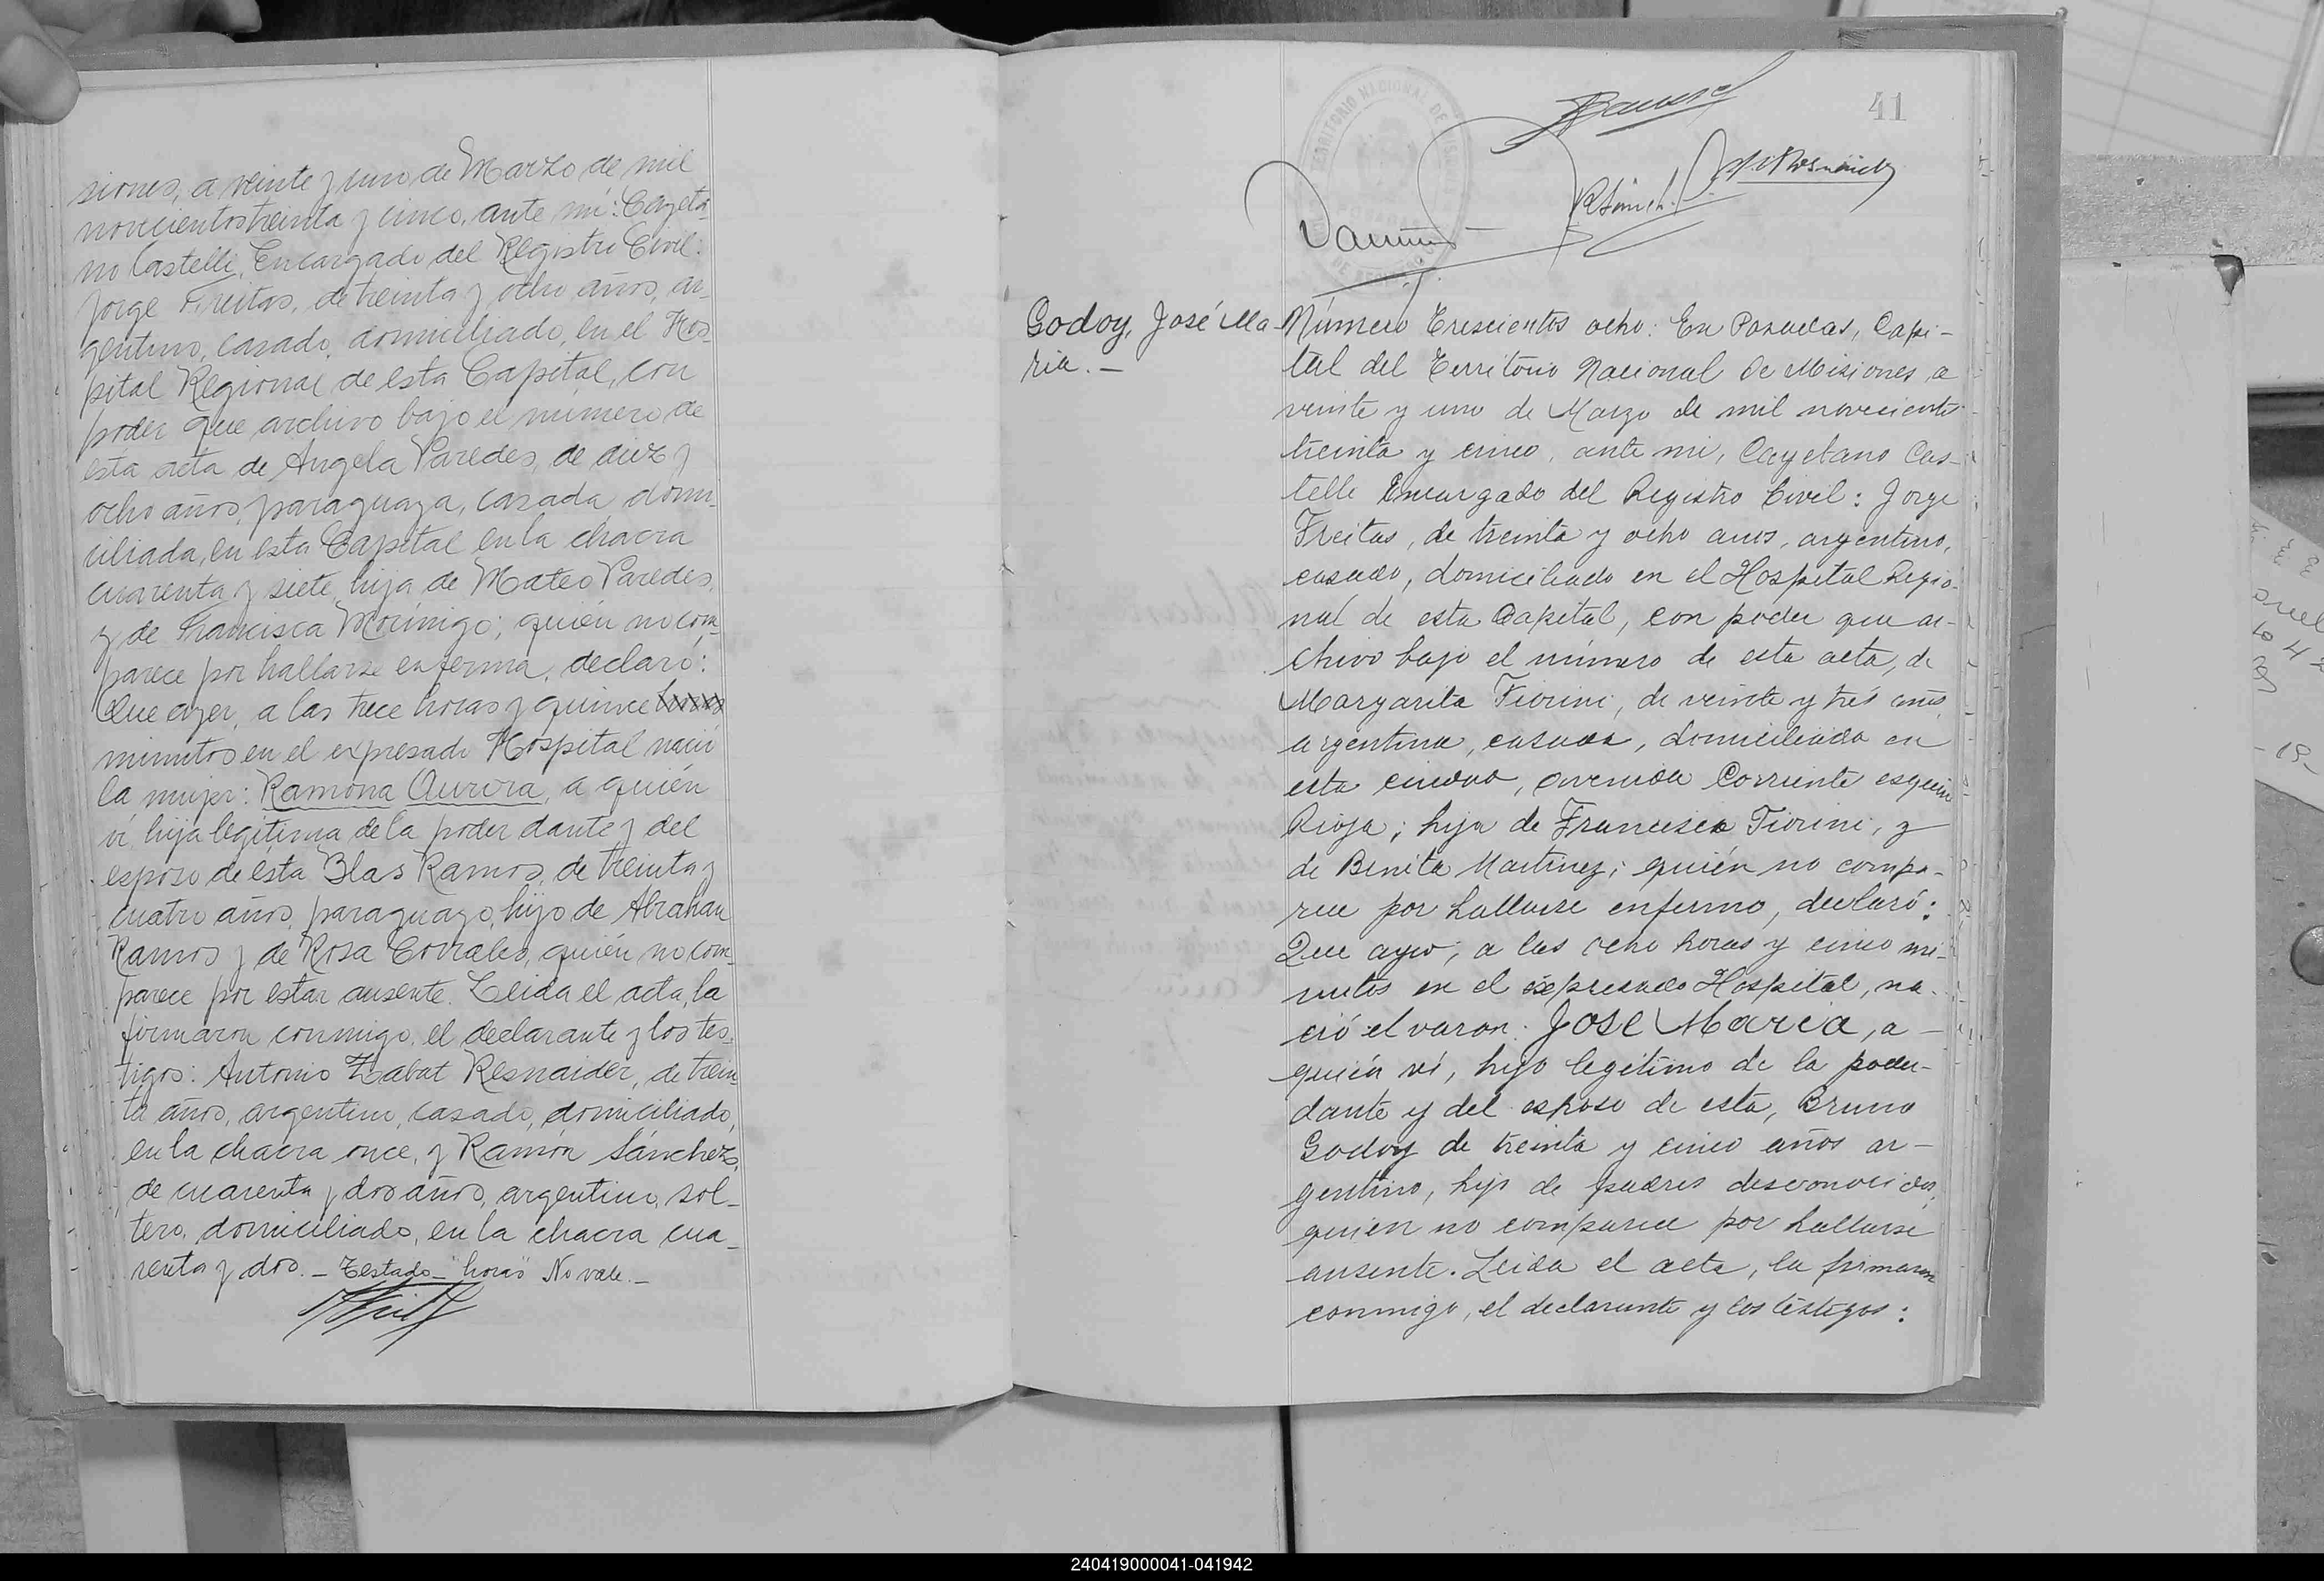 siones, a veinte y uno de Marzo de mil
novecientos treinta y cinco, ante mí: Cayeta-
no Castelli, Encargado del Registro Civil:
Jorge Freitas, de treinta y ocho años, ar-
gentino, casado, domiciliado, en el Hos-
pital Regional de esta Capital, con
poder que archivo bajo el número de
esta acta de Angela Paredes, de diez y
ocho años, paraguaya, casada, domi-
ciliada, en esta Capital en la chacra
cuarenta y siete, hija de Mateo Paredes,
y de Francisca Morínigo; quién no com-
parece por hallarse enferma, declaró:
Que ayer, a las trece horas y quince horas
minutos en el expresado Hospital nació
la mujer: Ramona Aurora, a quién
ví, hija legítima de la poder dante y del
esposo de ésta Blas Ramos, de treinta y
cuatro años, paraguayo, hijo de Abrahan
Ramos y de Rosa Corrales, quién no com-
parece por estar ausente. Leida el acta, la
firmaron conmigo, el declarante y los tes-
tigos: Antonio Zabat Resnaider, de trein
ta años, argentino, casado, domiciliado,
en la chacra once, y Ramón Sánchez,
de cuarenta y dos años, argentino, sol-
tero, domiciliado, en la chacra cua-
renta y dos. - Testado - "horas" No vale. -
41
TERRITORIO NACIONAL DE MISIONES
Godoy, José Ma-
ria. -
Número Trescientos ocho: En Posadas, Capi-
tal del Territorio Nacional de Misiones a
veinte y uno de Marzo de mil novecientos
treinta y cinco, ante mi, Cayetano Cas-
telli Encargado del Registro Civil: Jorge
Freitas, de treinta y ocho anos, argentino,
casado, domiciliado en el Hospital Regio-
nal de esta Capital, con poder que ar-
chivo bajo el número de esta acta, de
Margarita Fiorini, de veinte y trés años
argentina, casada, domiciliada en
esta ciudad, avenida Corriente esquina
Rioja; hija de Francisco Fiorini, y
de Benita Martinez; quién no compa-
rece por hallarse enfermo, declaró:
Que ayer, a las ocho horas y cinco mi-
nutos en el expresado Hospital, na-
ció el varon: José Maria, a -
quién ví, hijo legitimo de la poder-
dante y del esposo de esta, Bruno
Godoy de treinta y cinco años ar-
gentino, hijo de padres desconocidos,
quien no comparece por hallarse
ausente. Leida el acta, la firmaron
conmigo, el declarante y los testigos:
240419000041-041942